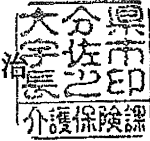 大分県
宇佐市
治
長之印
介護保険課